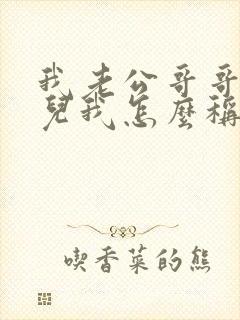 我老公哥哥
兒我怎麼稱
喫香菜的熊